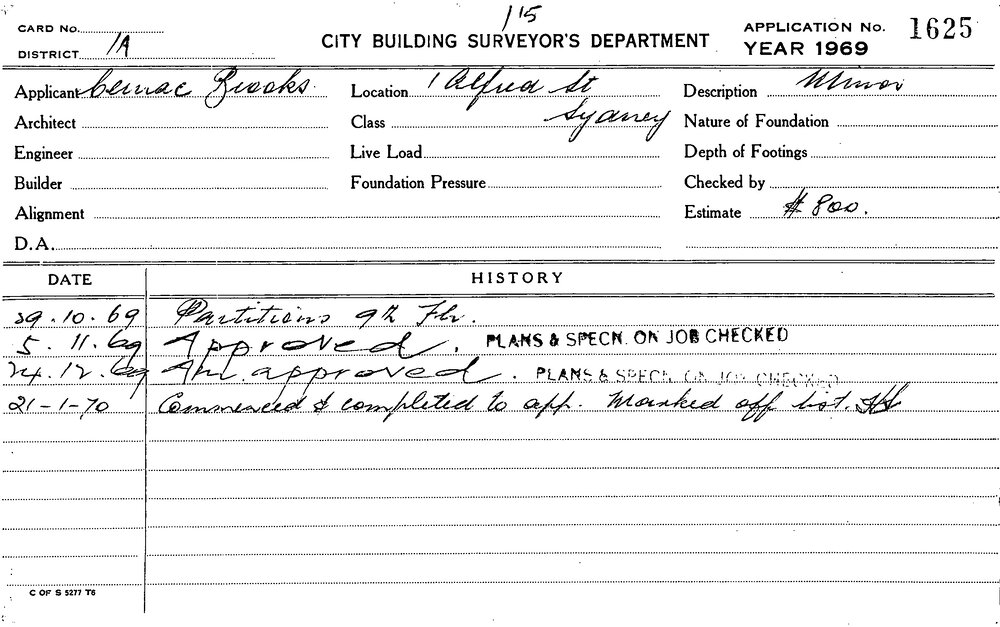 1/15
CARD No.
DISTRICT 1A
CITY BUILDING SURVEYOR'S DEPARTMENT
APPLICATION No. 1625
YEAR 1969
Applicant Cemac Brooks
Location 1 Alfred St
Sydney
Description Minor
Architect
Class
Nature of Foundation
Engineer
Live Load
Depth of Footings
Builder
Foundation Pressure
Checked by
Alignment
Estimate $ 800.
D.A.
DATE HISTORY
29.10.69 Partitions 9th Flr.
5.11.69 Approved. PLANS & SPECN. ON JOB CHECKED
24.12.69 Am. approved. PLANS & SPECN. ON JOB CHECKED
21-1-70 Commenced & completed to app. Marked off list.
C OF S 5277 T6